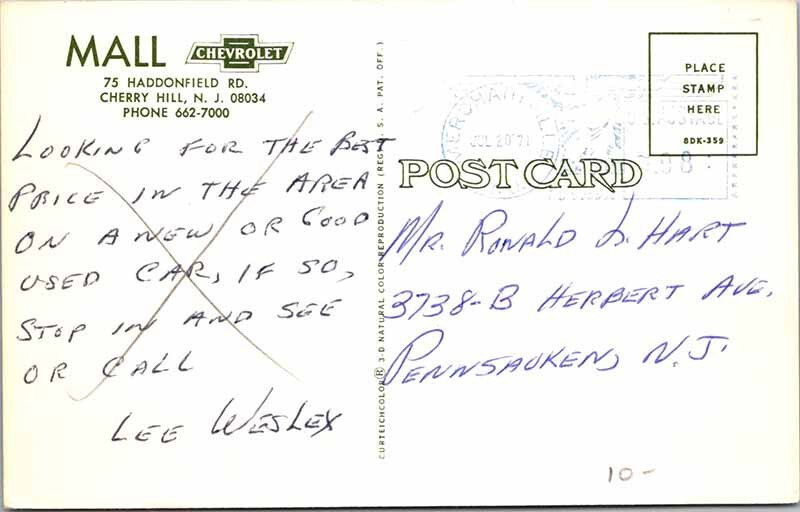 MALL CHEVROLET
75 HADDONFIELD RD.
CHERRY HILL, N. J. 08034
PHONE 662-7000
LOOKING FOR THE BEST
PRICE IN THE AREA
ON A NEW OR GOOD
USED CAR, IF SO,
STOP IN AND SEE
OR CALL
LEE WESLEY
CURTEICHCOLOR® 3-D NATURAL COLOR REPRODUCTION (REG. U. S. A. PAT. OFF.)
PLACE
STAMP
HERE
8DK-359
JUL 20 '71
U.S. POSTAGE
POST CARD
MR. RONALD L. HART
3738-B HERBERT AVE.
PENNSAUKEN, N.J.
10-